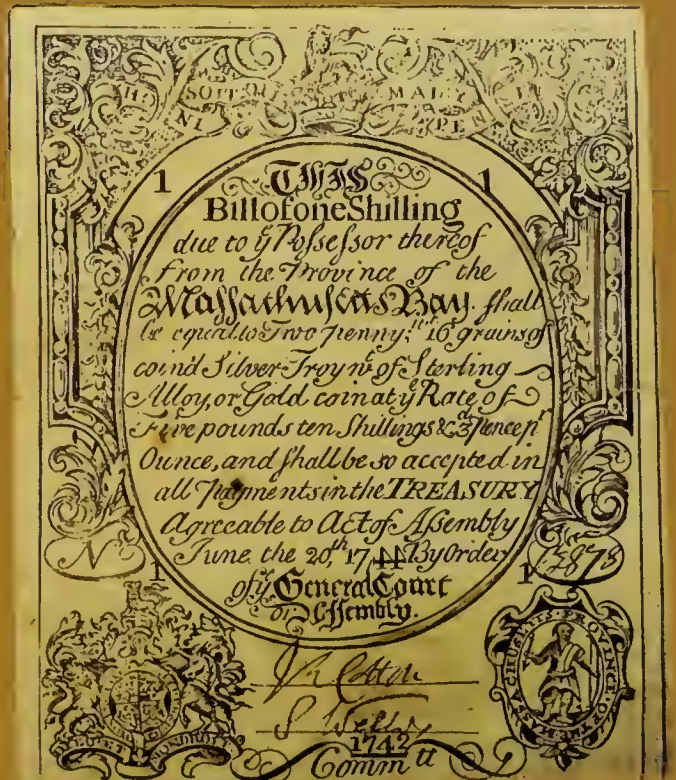 HO
SOIT QUI
MAL Y
NI
PEN
1
1
THIS
Bill of one Shilling
due to yͤ Possessor thereof
from the Province of the
Massachusetts Bay. shall
be equal to Two penny wᵗ 16 grains of
coin'd Silver Troy wᵗ of Sterling
Alloy, or Gold coin at yͤ Rate of
Five pounds ten Shillings & 3 pence pʳ
Ounce, and shall be so accepted in
all Payments in the TREASURY
Agreeable to Act of Assembly
June the 20ᵗʰ, 1744 By Order
of yͤ General Court
or Assembly.
Nº
1
1
DIEU ET MON DROIT
Cotton
1742
Commᵗᵗ